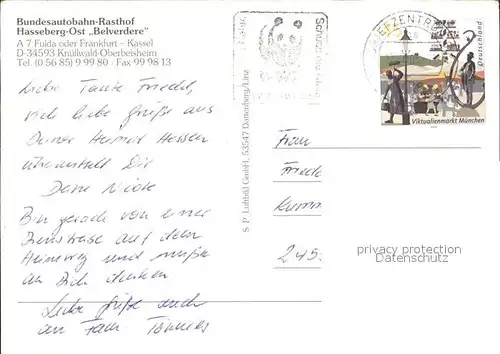 Bundesautobahn-Rasthof
Hasseberg-Ost „Belverdere"
A 7 Fulda oder Frankfurt – Kassel
D-34593 Knüllwald-Oberbeisheim
Tel. (0 56 85) 9 99 80 · Fax 99 98 13
Liebe Tante Friedel,
viel liebe Grüße aus
Deiner Heimat Hessen
übermittelt Dir
Deine Nichte
Bin gerade von einer
Dienstreise auf dem
Heimweg und mußte
an Dich denken
Liebe Grüße auch
an Fam. Tönnies
S P Luftbild GmbH, 53547 Dattenberg/Linz
BRIEFZENTRUM
Deutschland
Viktualienmarkt München
Frau
Friede
Kumm
245
privacy protection
Datenschutz